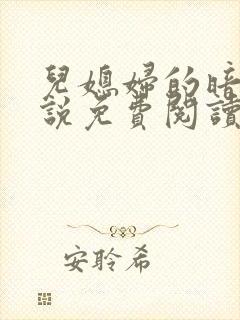 兒媳婦的暗
說免費閱讀
安聆希